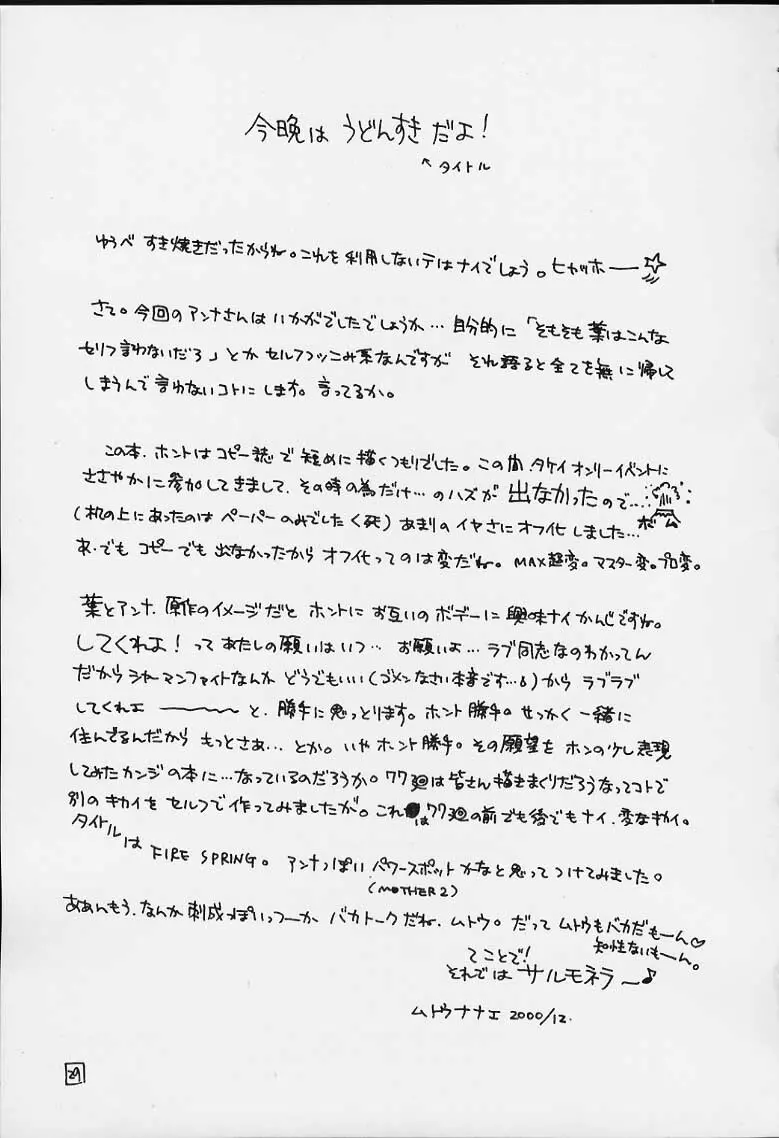 今晩は うどんすき だよ!
↖ タイトル
ゆうべ すき焼きだったからね。これを利用しないテはナイでしょう。ヒャッホー☆
さて。今回のアンナさんはいかがでしたでしょうか… 自分的に「そもそも葉はこんな
セリフ言わないだろ」とか セルフつッこみ系なんですが それ語ると全てを無に帰して
しまうんで言わないコトにします。言ってるか。
この本、ホントはコピー誌で短めに描くつもりでした。この間、タケイオンリーイベントに
ささやかに参加してきまして、その時の為だけ…のハズが 出なかったので…
ボム
(机の上にあったのは ペーパーのみでした<死) あまりのイヤさにオフ化しました…
あ、でも コピーでも出なかったから オフ化ってのは変だね。MAX超変。マスター変。プロ変。
葉とアンナ、原作のイメージだと ホントにお互いのボデーに興味ナイかんじですね。
してくれよ! って あたしの願いはいつ… お願いよ… ラブ同志なのわかってん
だからシャーマンファイトなんか どうでもいい(ゴメンなさい本音です…) から ラブラブ
してくれェ ――――― と、勝手に思っとります。ホント勝手。せっかく 一緒に
住んでるんだから もっとさぁ… とか。いや ホント勝手。その願望を ホンの少し表現
してみたカンジの本に…なっているのだろうか。77廻は皆さん描きまくりだろうなってコトで
別のキカイを セルフで作ってみましたが。これは77廻の前でも後でもナイ、変なキカイ。
タイトルは FIRE SPRING。 アンナっぽい パワースポットかなと思って つけてみました。
(MOTHER2)
ああんもう、なんか 刺成っぽいっつーか バカトークだね、ムトウ。だって ムトウもバカだもーん♡
知性ないもーん。
てことで!
それでは サルモネラ ~♪
ムトウナナエ 2000/12.
29